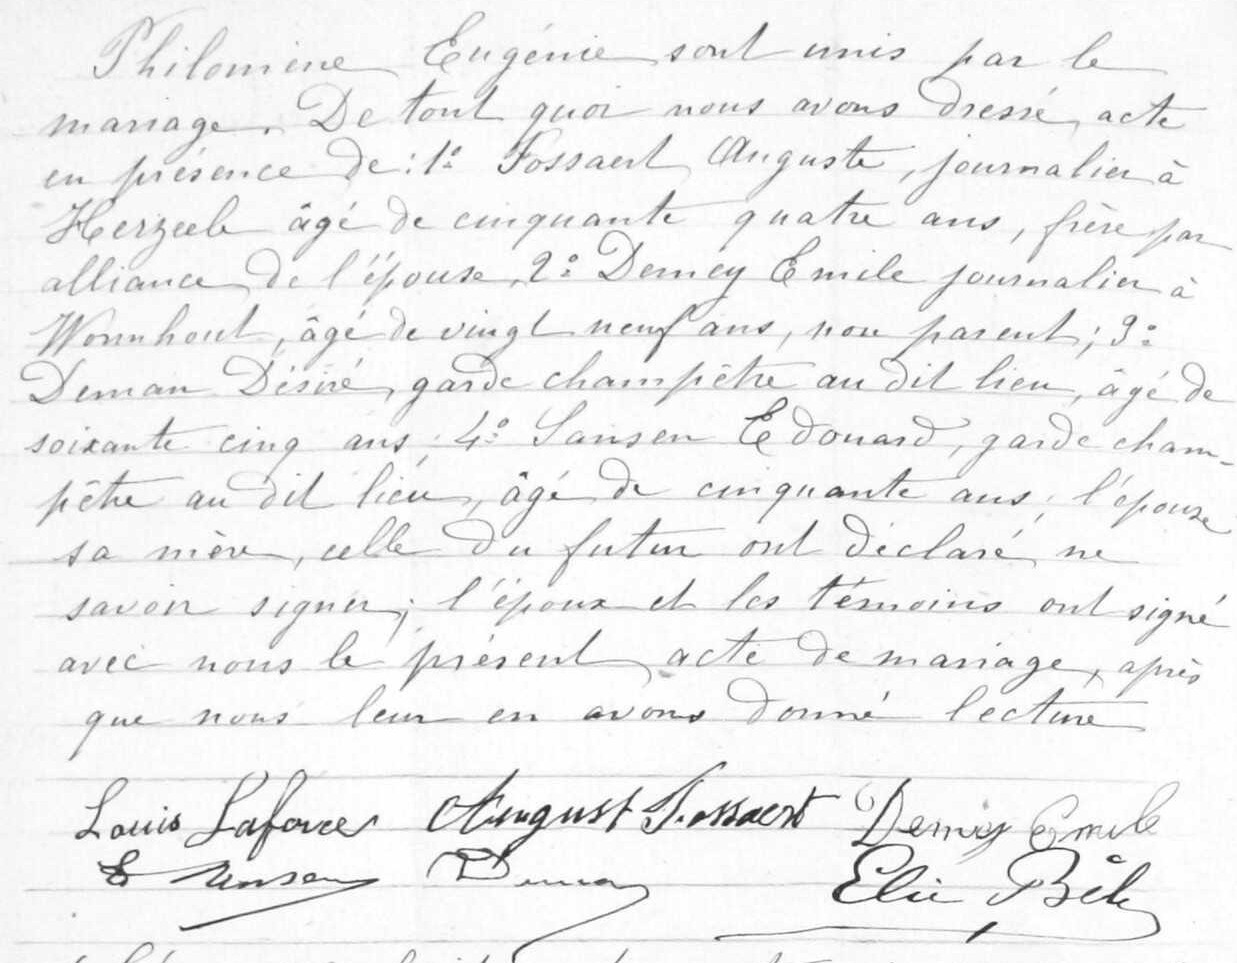 Philomène Eugénie sont unis par le
mariage. De tout quoi nous avons dressé acte
en présence de : 1° Fossaert Auguste, journalier à
Herzeele âgé de cinquante quatre ans, frère par
alliance de l'épouse, 2° Demey Emile journalier à
Wormhout, âgé de vingt neuf ans, non parent ; 3°
Deman Désiré, garde champêtre au dit lieu, âgé de
soixante cinq ans ; 4° Sansen Edouard, garde cham-
pêtre au dit lieu, âgé de cinquante ans ; l'épouse
sa mère, celle du futur ont déclaré ne
savoir signer ; l'époux et les témoins ont signé
avec nous le présent acte de mariage, après
que nous leur en avons donné lecture
Louis Laforce August Fossaert Demey Emile
E Sansen Deman Elie Bêle